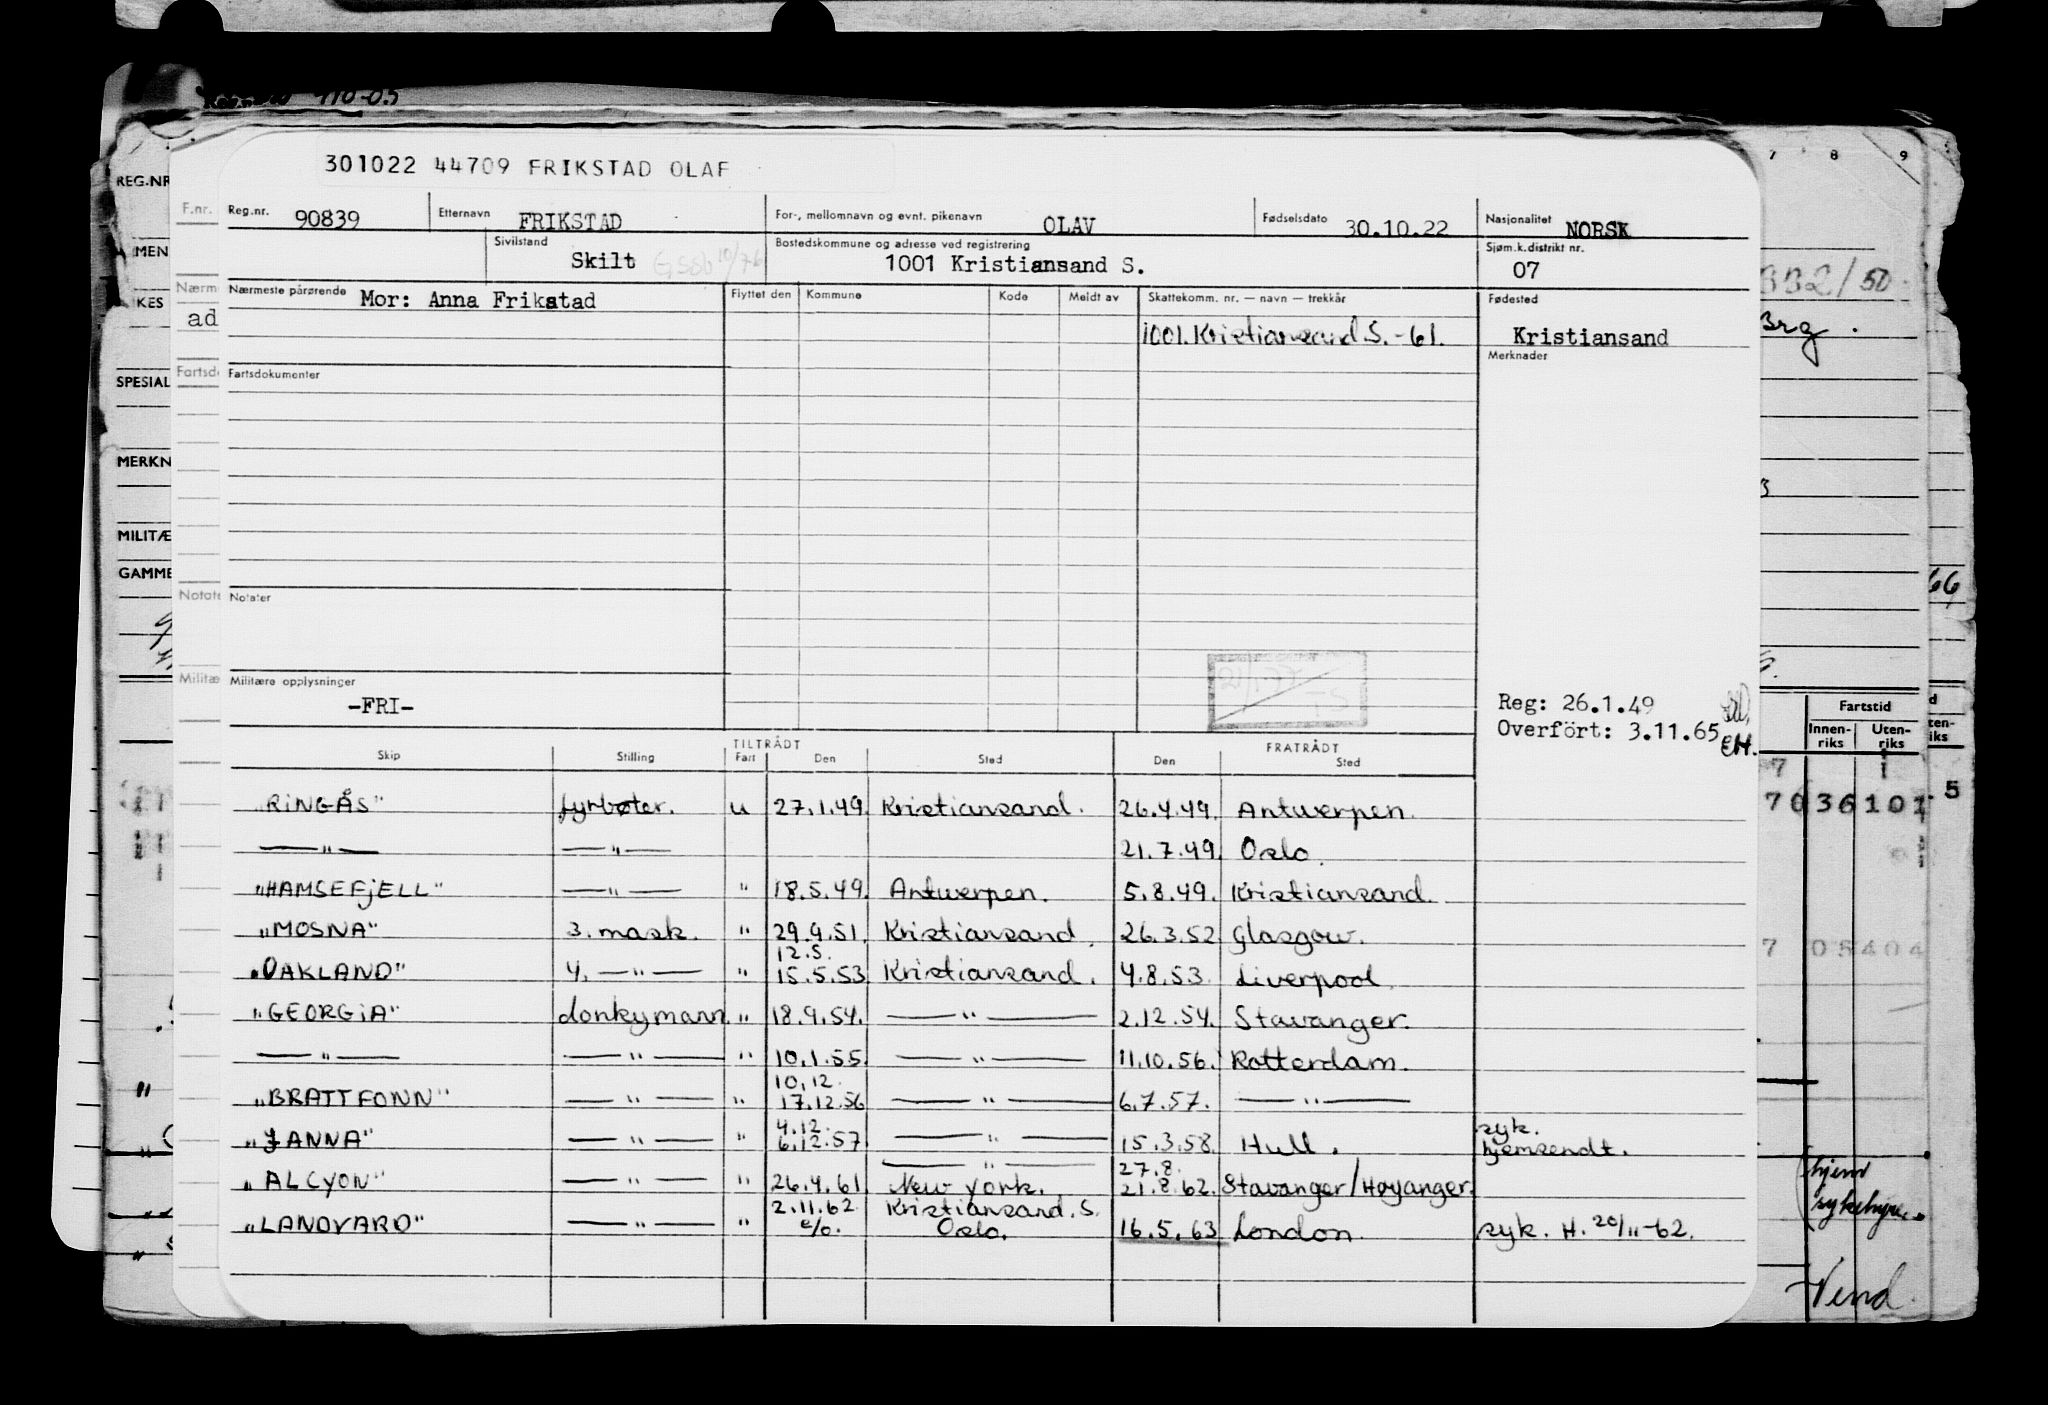 910-05
301022 44709 FRIKSTAD OLAF
REG.NR
F.nr. Reg.nr. 90839 Etternavn FRIKSTAD For-, mellomnavn og evnt. pikenavn OLAV Fødselsdato 30.10.22 Nasjonalitet NORSK
Sivilstand Skilt Bostedskommune og adresse ved registrering 1001 Kristiansand S. Sjøm.k.distrikt nr. 07
Nærmeste pårørende Mor: Anna Frikstad Flyttet den Kommune Kode Meldt av Skattekomm. nr. — navn — trekkår Fødested
1001. Kristiansand S. -61. Kristiansand
Merknader
Fartsdokumenter
SPESIAL
MERKN
MILITÆ
GAMME
Notater
Militære opplysninger
-FRI-
Reg: 26.1.49
Overført: 3.11.65 EH.
TILTRÅDT FRATRÅDT
Skip Stilling Fart Den Sted Den Sted
"RINGÅS" fyrbøter. u 27.1.49. Kristiansand. 26.4.49. Antwerpen.
—"— —"— 21.7.49. Oslo.
"HAMSEFJELL" —"— " 18.5.49. Antwerpen. 5.8.49. Kristiansand.
"MOSNA" 3. mask. " 29.9.51. Kristiansand. 26.3.52 Glasgow.
12.5.
"OAKLAND" 4. —"— " 15.5.53 Kristiansand. 4.8.53. Liverpool.
"GEORGIA" donkymann " 18.9.54. —"— 2.12.54. Stavanger.
—"— —"— " 10.1.55. —"— 11.10.56. Rotterdam.
10.12.
"BRATTFONN" —"— " 17.12.56 —"— 6.7.57. —"—
4.12. syk.
"JANNA" —"— " 6.12.57. —"— 15.3.58. Hull. hjemsendt.
—"— 27.8.
"ALCYON" —"— " 26.4.61. New York. 21.8.62. Stavanger/Høyanger.
2.11.62 Kristiansand. S.
"LANDVARD" —"— " e/o. Oslo. 16.5.63 London. syk. H. 20/11-62.
7 8 9
332/50
Brg.
Fartstid
Innen-riks Uten-riks
hjem
Vend